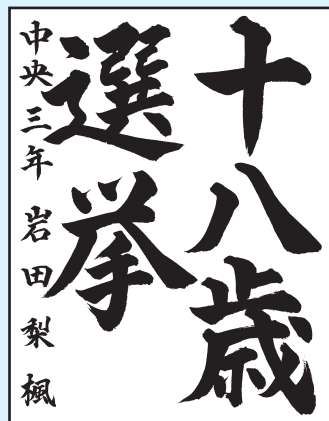 十八歳
選挙
中央三年 岩田梨楓